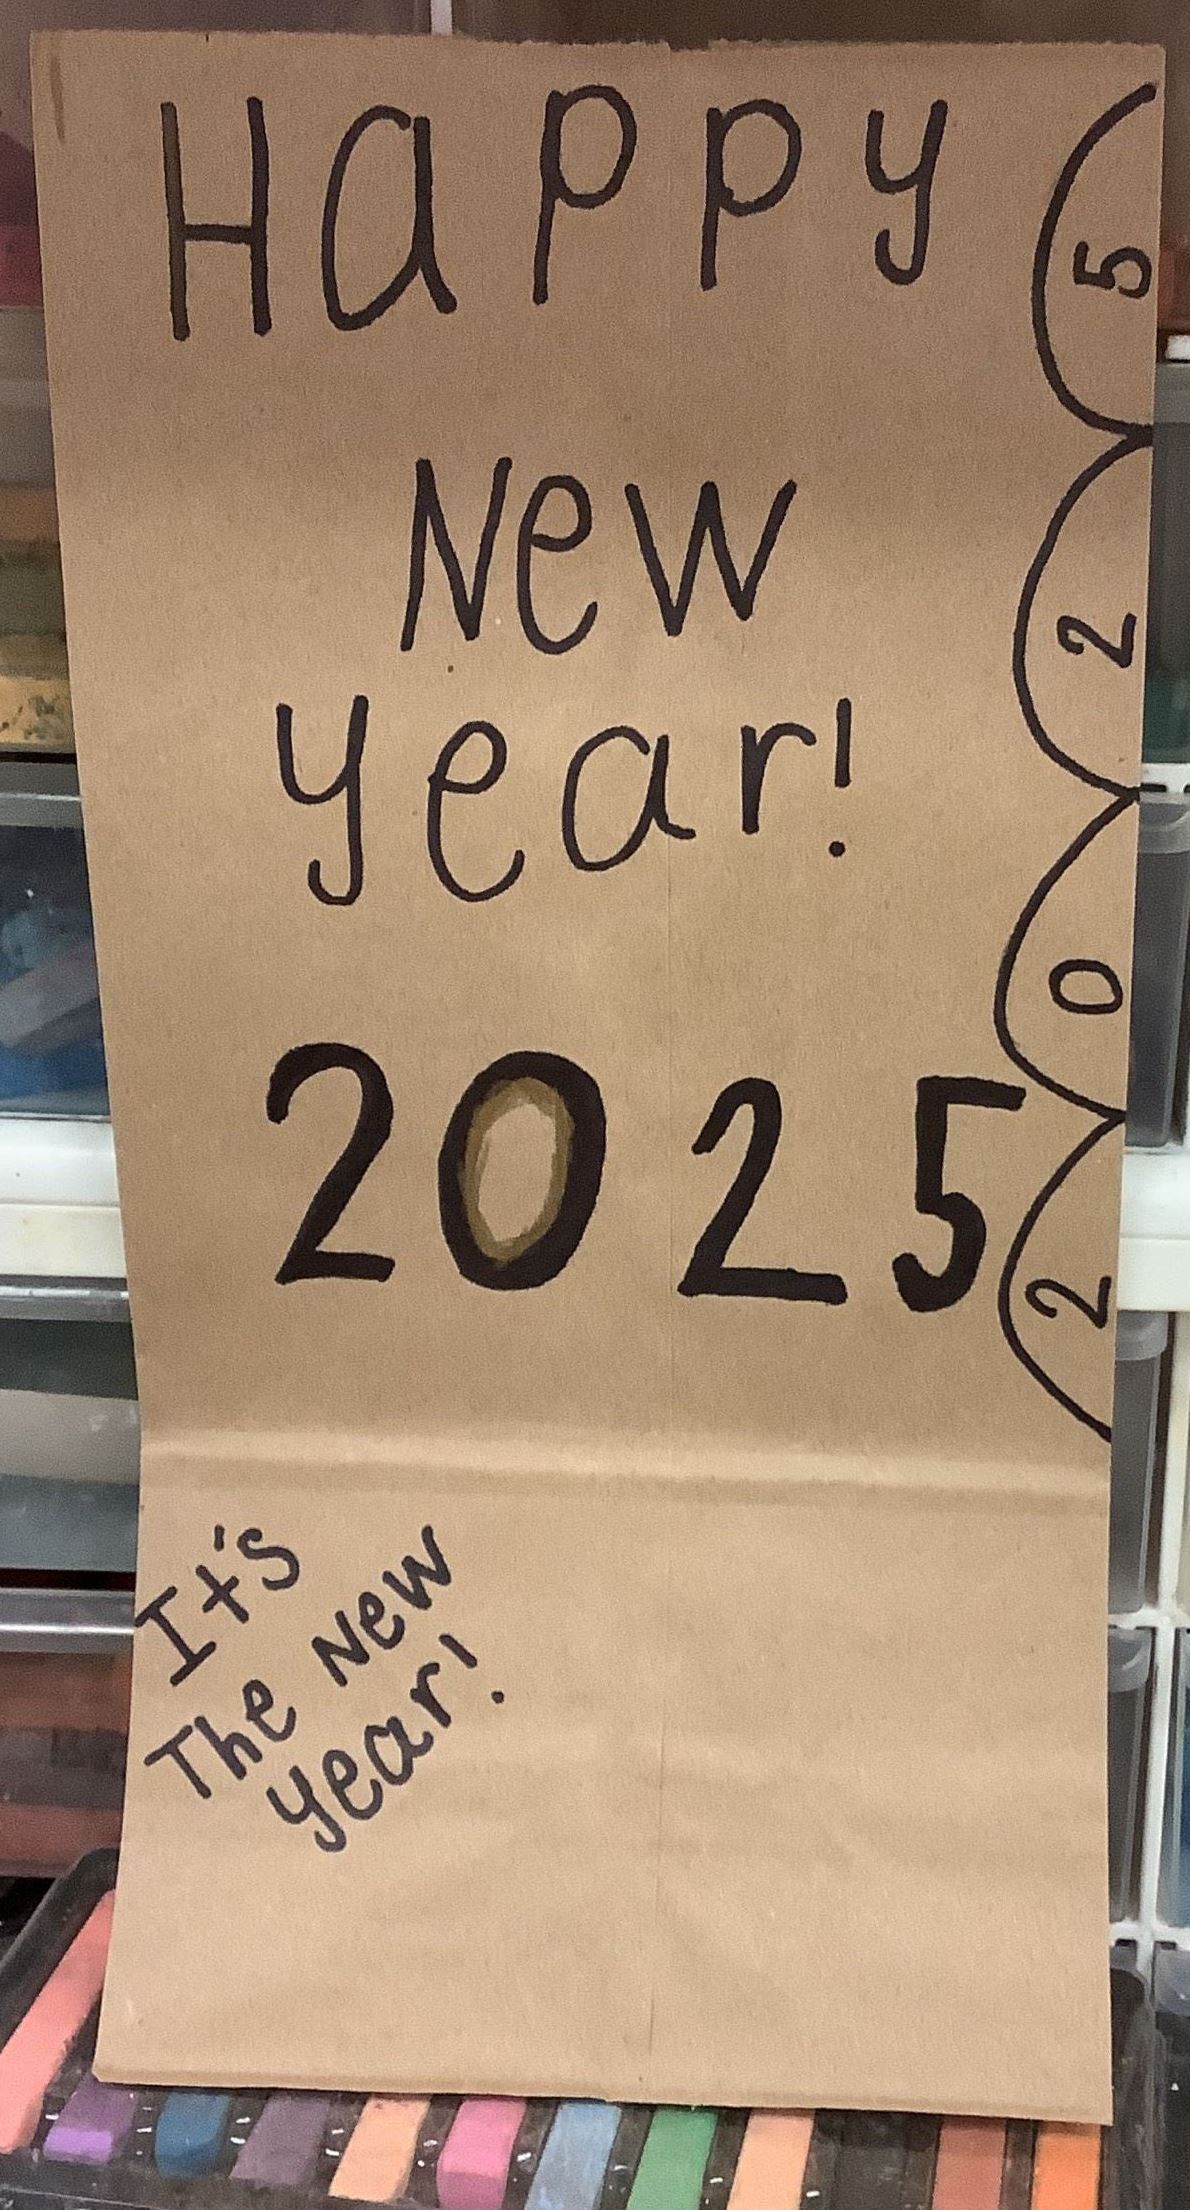 Happy
New
year!
2025
It's
The New
year!
2
0
2
5